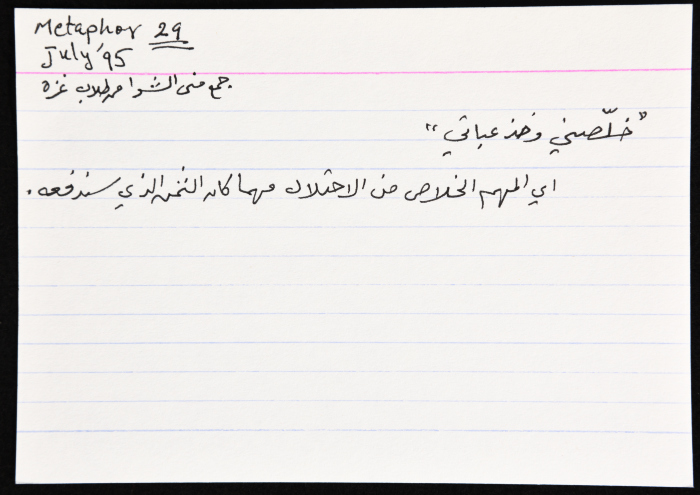 Metaphor 29
July '95
جمع منى الشوا من طلاب غزة
"خلّصني وخذ عباتي"
اي المهم الخلاص من الاحتلال مهما كان الثمن الذي سندفعه.